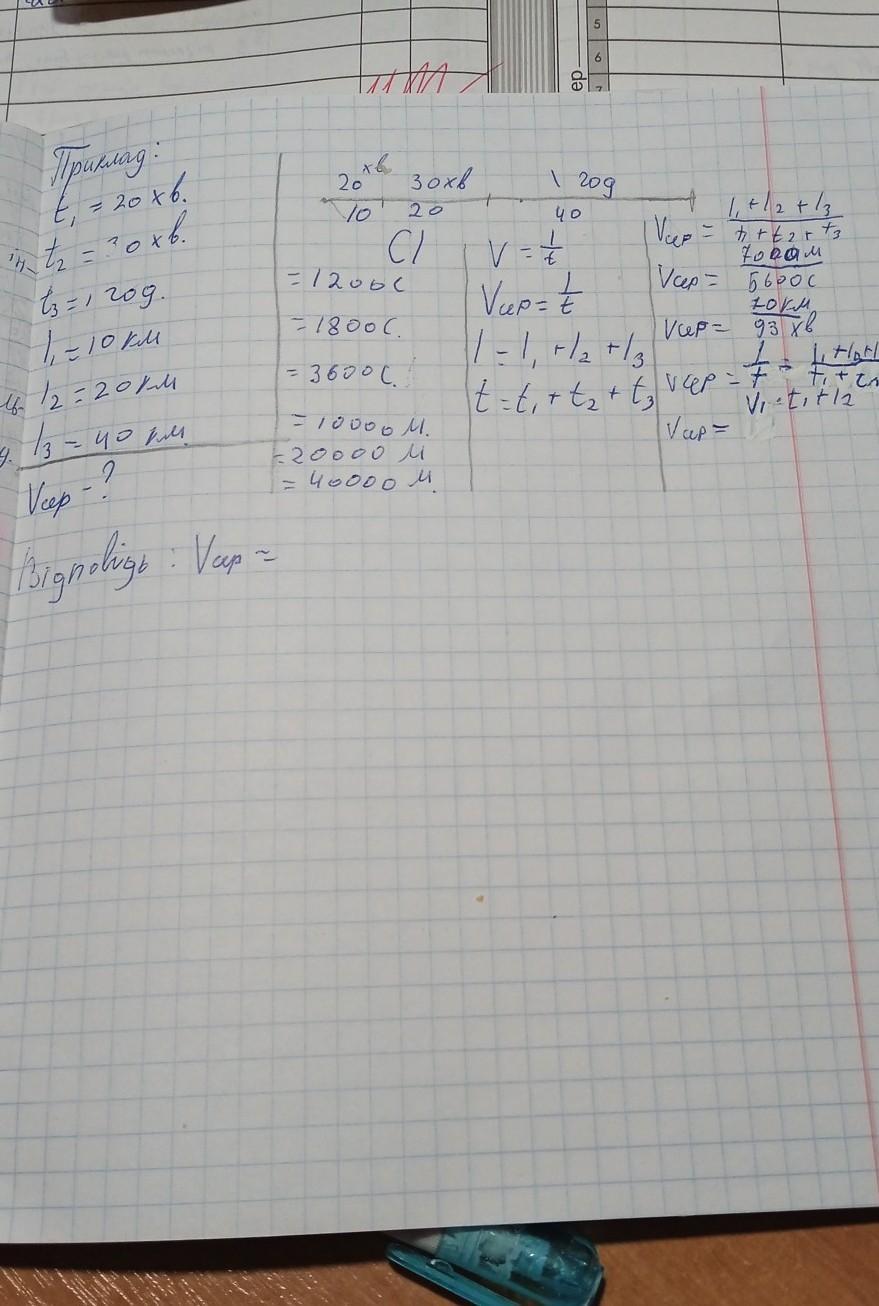 5
6
ер
7
Приклад:
t₁ = 20 хв.
t₂ = 30 хв.
t₃ = 1 год.
l₁ = 10 км
l₂ = 20 км
l₃ = 40 км.
Vсер - ?
20 хв 30хв 1 год
10 20 40
СІ
= 1200с
= 1800с.
= 3600с.
= 10000 м.
= 20000 м
= 40000 м.
V = l/t
Vсер = l/t
l = l₁ + l₂ + l₃
t = t₁ + t₂ + t₃
Vсер = l₁ + l₂ + l₃ / t₁ + t₂ + t₃
Vсер = 7000м / 5600с
Vсер = 70км / 93 хв
Vсер = l/t =
V₁ = t₁ + l₂
Vсер =
Відповідь : Vсер =